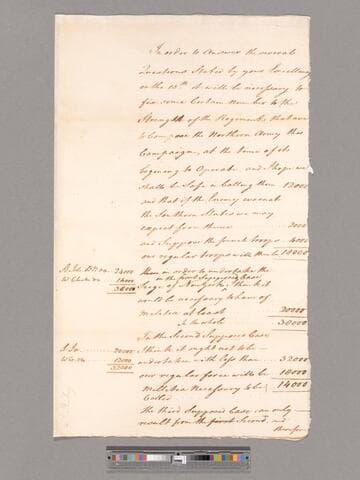 In order to Answer the several
Questions Stated by your Excellency
on the 15th it will be necessary to
fix some Certain number to the
Strength of the Regiments that are
to Compose the Northern Army this
Campaign, at the time of its
begining to Operate, and I hope we
shall be Safe in Calling them 12000
and that if the Enemy evacuate
the Southern States we may
expect from thence 2000
and Suppose the french troops 4000
our regular troops will then be 18000
then in order to undertake the
in the first Supposed Case
Siege of New York, then it
would be necessary to have of
Militia at least
In the whole 30000
In the Second Supposed Case
I think it ought not to be
undertaken with less than 32000
our regular force will be 18000
Militia Necessary to be 14000
Called
the third Supposed Case can only
result from the first Second, and
24000
36000
20000
12000
32000